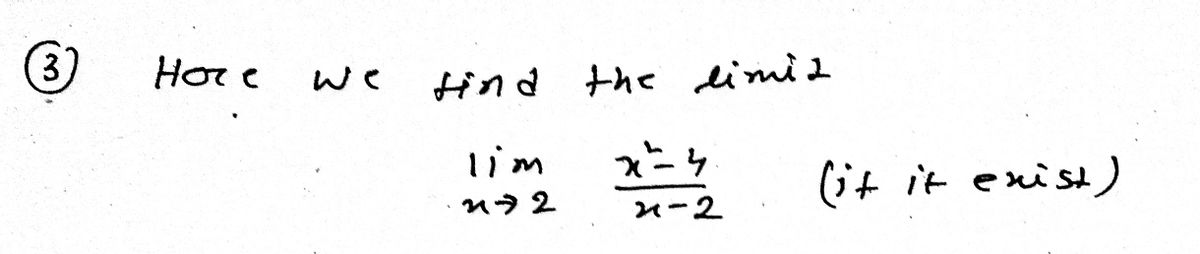 ③ Here we find the limit
lim x→2 x²-4 / x-2 (if it exist)